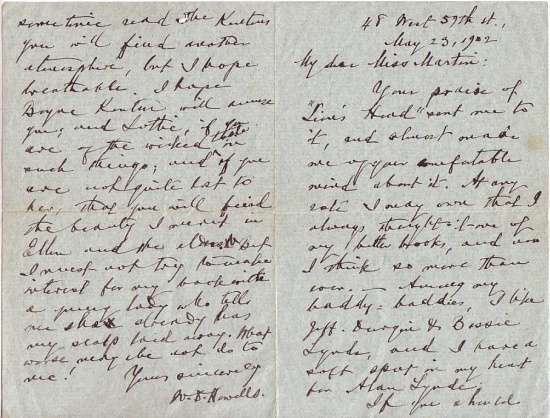 48 West 59th st.,
May 23, 1902
My dear Miss Martin:
Your praise of
"Lion's Head" sent me to
it, and almost made
me of your comfortable
mind about it. At any
rate I may own that I
always thought it one of
my better books, and now
I think so more than
ever. — Among my
baddy-baddies, I like
Jeff. Durgin & Bessie
Lynde, and I have a
soft spot in my heart
for Alan Lynde.
If you should
sometime read The Kentons
you will find another
atmosphere, but I hope
breathable. I hope
Boyne Kenton will amuse
you; and Lottie, if you
are of the wicked that
such things; and if you
are not quite lost to
her, that you will find
the beauty I meant in
Ellen and the But
I must not try to
interest for my book with
a young lady who tells
me she already has
my scalp laid away. What
worse may she not do to
me!
Yours sincerely
W. D. Howells.